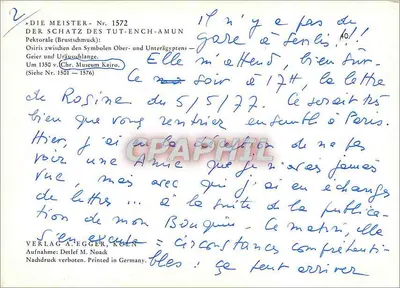 2
«DIE MEISTER» Nr. 1572
DER SCHATZ DES TUT-ENCH-AMUN
Pektorale (Brustschmuck):
Osiris zwischen den Symbolen Ober- und Unterägyptens —
Geier und Uräusschlange.
Um 1350 v. Chr. Museum Kairo.
(Siehe Nr. 1501 — 1576)
Il n'y a pas de
gare à Senlis !!!
Elle m'attend, bien sûr.
Ce soir à 17H, la lettre
de Rosine du 5/5/77. Ce serait très
bien que vous rentriez ensemble à Paris.
Hier, j'ai eu la déception de ne pas
voir une Amie que je n'avais jamais
vue, mais avec qui j'ai eu échanges
de lettres... à la suite de la publica-
tion de mon Bouquin. Ce matin, elle
s'en excuse = circonstances compréhensi-
bles : ça peut arriver
CPAPHIL
VERLAG A. EGGER, KÖLN
Aufnahme: Detlef M. Noack
Nachdruck verboten. Printed in Germany.